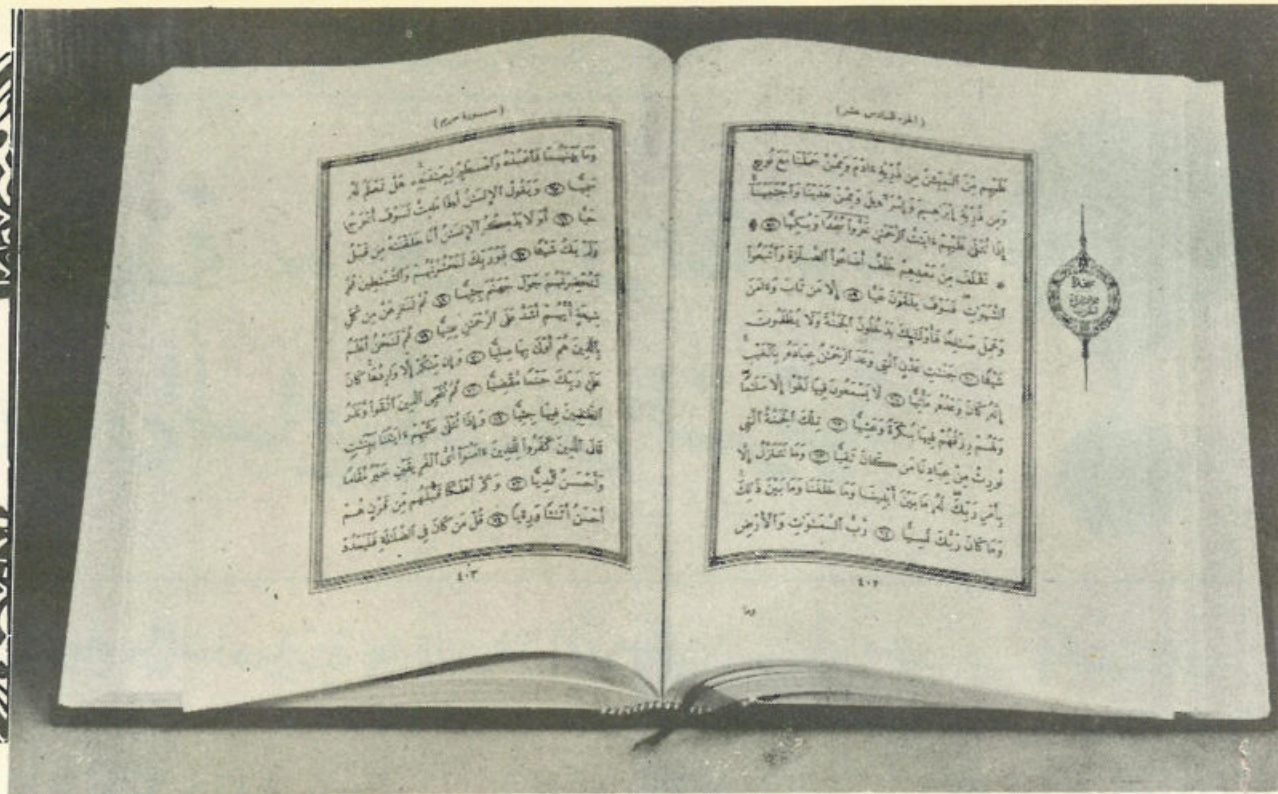 (الجزء السادس عشر)
عَلَيْهِم مِّنَ ٱلنَّبِيِّـۧنَ مِن ذُرِّيَّةِ ءَادَمَ وَمِمَّنْ حَمَلْنَا مَعَ نُوحٍ
وَمِن ذُرِّيَّةِ إِبْرَٰهِيمَ وَإِسْرَٰٓءِيلَ وَمِمَّنْ هَدَيْنَا وَٱجْتَبَيْنَآ
إِذَا تُتْلَىٰ عَلَيْهِمْ ءَايَٰتُ ٱلرَّحْمَٰنِ خَرُّوا۟ سُجَّدًا وَبُكِيًّا ٥٨
* فَخَلَفَ مِنۢ بَعْدِهِمْ خَلْفٌ أَضَاعُوا۟ ٱلصَّلَوٰةَ وَٱتَّبَعُوا۟
ٱلشَّهَوَٰتِ فَسَوْفَ يَلْقَوْنَ غَيًّا ٥٩ إِلَّا مَن تَابَ وَءَامَنَ
وَعَمِلَ صَٰلِحًا فَأُو۟لَٰٓئِكَ يَدْخُلُونَ ٱلْجَنَّةَ وَلَا يُظْلَمُونَ
شَيْـًٔا ٦٠ جَنَّٰتِ عَدْنٍ ٱلَّتِى وَعَدَ ٱلرَّحْمَٰنُ عِبَادَهُۥ بِٱلْغَيْبِ
إِنَّهُۥ كَانَ وَعْدُهُۥ مَأْتِيًّا ٦١ لَّا يَسْمَعُونَ فِيهَا لَغْوًا إِلَّا سَلَٰمًا
وَلَهُمْ رِزْقُهُمْ فِيهَا بُكْرَةً وَعَشِيًّا ٦٢ تِلْكَ ٱلْجَنَّةُ ٱلَّتِى
نُورِثُ مِنْ عِبَادِنَا مَن كَانَ تَقِيًّا ٦٣ وَمَا نَتَنَزَّلُ إِلَّا
بِأَمْرِ رَبِّكَ لَهُۥ مَا بَيْنَ أَيْدِينَا وَمَا خَلْفَنَا وَمَا بَيْنَ ذَٰلِكَ
وَمَا كَانَ رَبُّكَ نَسِيًّا ٦٤ رَّبُّ ٱلسَّمَٰوَٰتِ وَٱلْأَرْضِ
٤٠٢
وما
سجدة
(سورة مريم)
وَمَا بَيْنَهُمَا فَٱعْبُدْهُ وَٱصْطَبِرْ لِعِبَٰدَتِهِۦ هَلْ تَعْلَمُ لَهُۥ
سَمِيًّا ٦٥ وَيَقُولُ ٱلْإِنسَٰنُ أَءِذَا مَا مِتُّ لَسَوْفَ أُخْرَجُ
حَيًّا ٦٦ أَوَلَا يَذْكُرُ ٱلْإِنسَٰنُ أَنَّا خَلَقْنَٰهُ مِن قَبْلُ
وَلَمْ يَكُ شَيْـًٔا ٦٧ فَوَرَبِّكَ لَنَحْشُرَنَّهُمْ وَٱلشَّيَٰطِينَ ثُمَّ
لَنُحْضِرَنَّهُمْ حَوْلَ جَهَنَّمَ جِثِيًّا ٦٨ ثُمَّ لَنَنزِعَنَّ مِن كُلِّ
شِيعَةٍ أَيُّهُمْ أَشَدُّ عَلَى ٱلرَّحْمَٰنِ عِتِيًّا ٦٩ ثُمَّ لَنَحْنُ أَعْلَمُ
بِٱلَّذِينَ هُمْ أَوْلَىٰ بِهَا صِلِيًّا ٧٠ وَإِن مِّنكُمْ إِلَّا وَارِدُهَا كَانَ
عَلَىٰ رَبِّكَ حَتْمًا مَّقْضِيًّا ٧١ ثُمَّ نُنَجِّى ٱلَّذِينَ ٱتَّقَوا۟ وَّنَذَرُ
ٱلظَّٰلِمِينَ فِيهَا جِثِيًّا ٧٢ وَإِذَا تُتْلَىٰ عَلَيْهِمْ ءَايَٰتُنَا بَيِّنَٰتٍ
قَالَ ٱلَّذِينَ كَفَرُوا۟ لِلَّذِينَ ءَامَنُوٓا۟ أَىُّ ٱلْفَرِيقَيْنِ خَيْرٌ مَّقَامًا
وَأَحْسَنُ نَدِيًّا ٧٣ وَكَمْ أَهْلَكْنَا قَبْلَهُم مِّن قَرْنٍ هُمْ
أَحْسَنُ أَثَٰثًا وَرِءْيًا ٧٤ قُلْ مَن كَانَ فِى ٱلضَّلَٰلَةِ فَلْيَمْدُدْ
٤٠٣